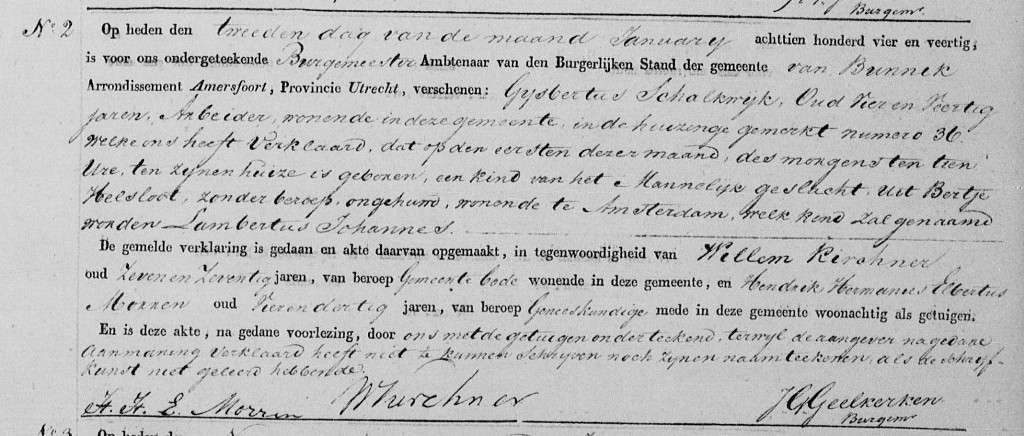 Burgemr.
No. 2 Op heden den tweeden dag van de maand January achttien honderd vier en veertig,
is voor ons ondergeteekende Burgemeester Ambtenaar van den Burgerlijken Stand der gemeente van Bunnik
Arrondissement Amersfoort, Provincie Utrecht, verschenen: Gysbertus Schalkwijk, Oud Vier en Veertig
jaren, Arbeider, wonende in deze gemeente, in de huizinge gemerkt numero 36.
welke ons heeft Verklaard, dat op den eersten dezer maand, des morgens ten tien
Ure, ten zynen huize is geboren, een kind van het Mannelijk geslacht, uit Bertje
Helsloot, zonder beroep, ongehuwd, wonende te Amsterdam, welk kind zal genaamd
worden Lambertus Johannes.
De gemelde verklaring is gedaan en akte daarvan opgemaakt, in tegenwoordigheid van Willem Kirchner
oud Zeven en Zeventig jaren, van beroep Gemeente bode wonende in deze gemeente, en Hendrik Hermanus Elbertus
Morren oud Vier en dertig jaren, van beroep Geneeskundige mede in deze gemeente woonachtig als getuigen.
En is deze akte, na gedane voorlezing, door ons met de getuigen onderteekend, terwyl de aangever na gedane
Aanmaning Verklaard heeft niet te kunnen Schryven noch zynen naam teekenen, als de Schryf-
kunst niet geleerd hebbende.
H. H. E. Morren WKirchner JGGeelkerken
Burgemr.
No. 3 Op heden den